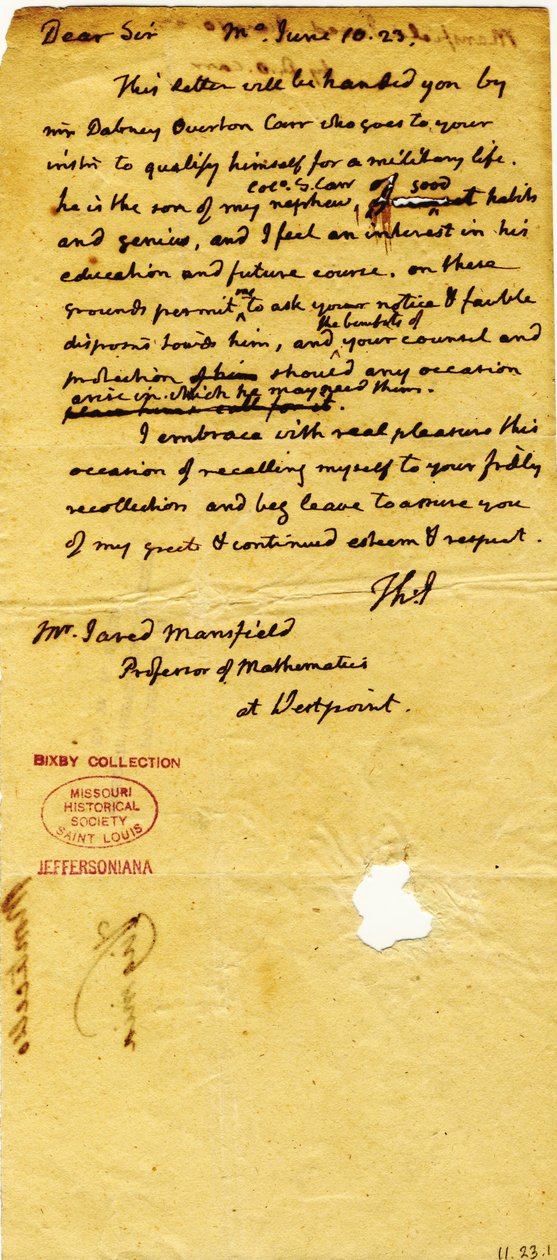 Dear Sir Mo. June 10. 23.
This letter will be handed you by
mr Dabney Overton Carr who goes to your
instn to qualify himself for a military life.
he is the son of my nephew, Colo. S. Carr of good habits
and genius, and I feel an interest in his
education and future course. on these
grounds permit me to ask your notice & favble
disposns towds him, and the benefits of your counsel and
protection of him should any occasion
arise in which he may need them.
I embrace with real pleasure this
occasion of recalling myself to your frdly
recollection and beg leave to assure you
of my great & continued esteem & respect.
Th:J
mr. Jared Mansfield
Professor of Mathematics
at Westpoint.
BIXBY COLLECTION
MISSOURI
HISTORICAL
SOCIETY
SAINT LOUIS
JEFFERSONIANA
11.23.1